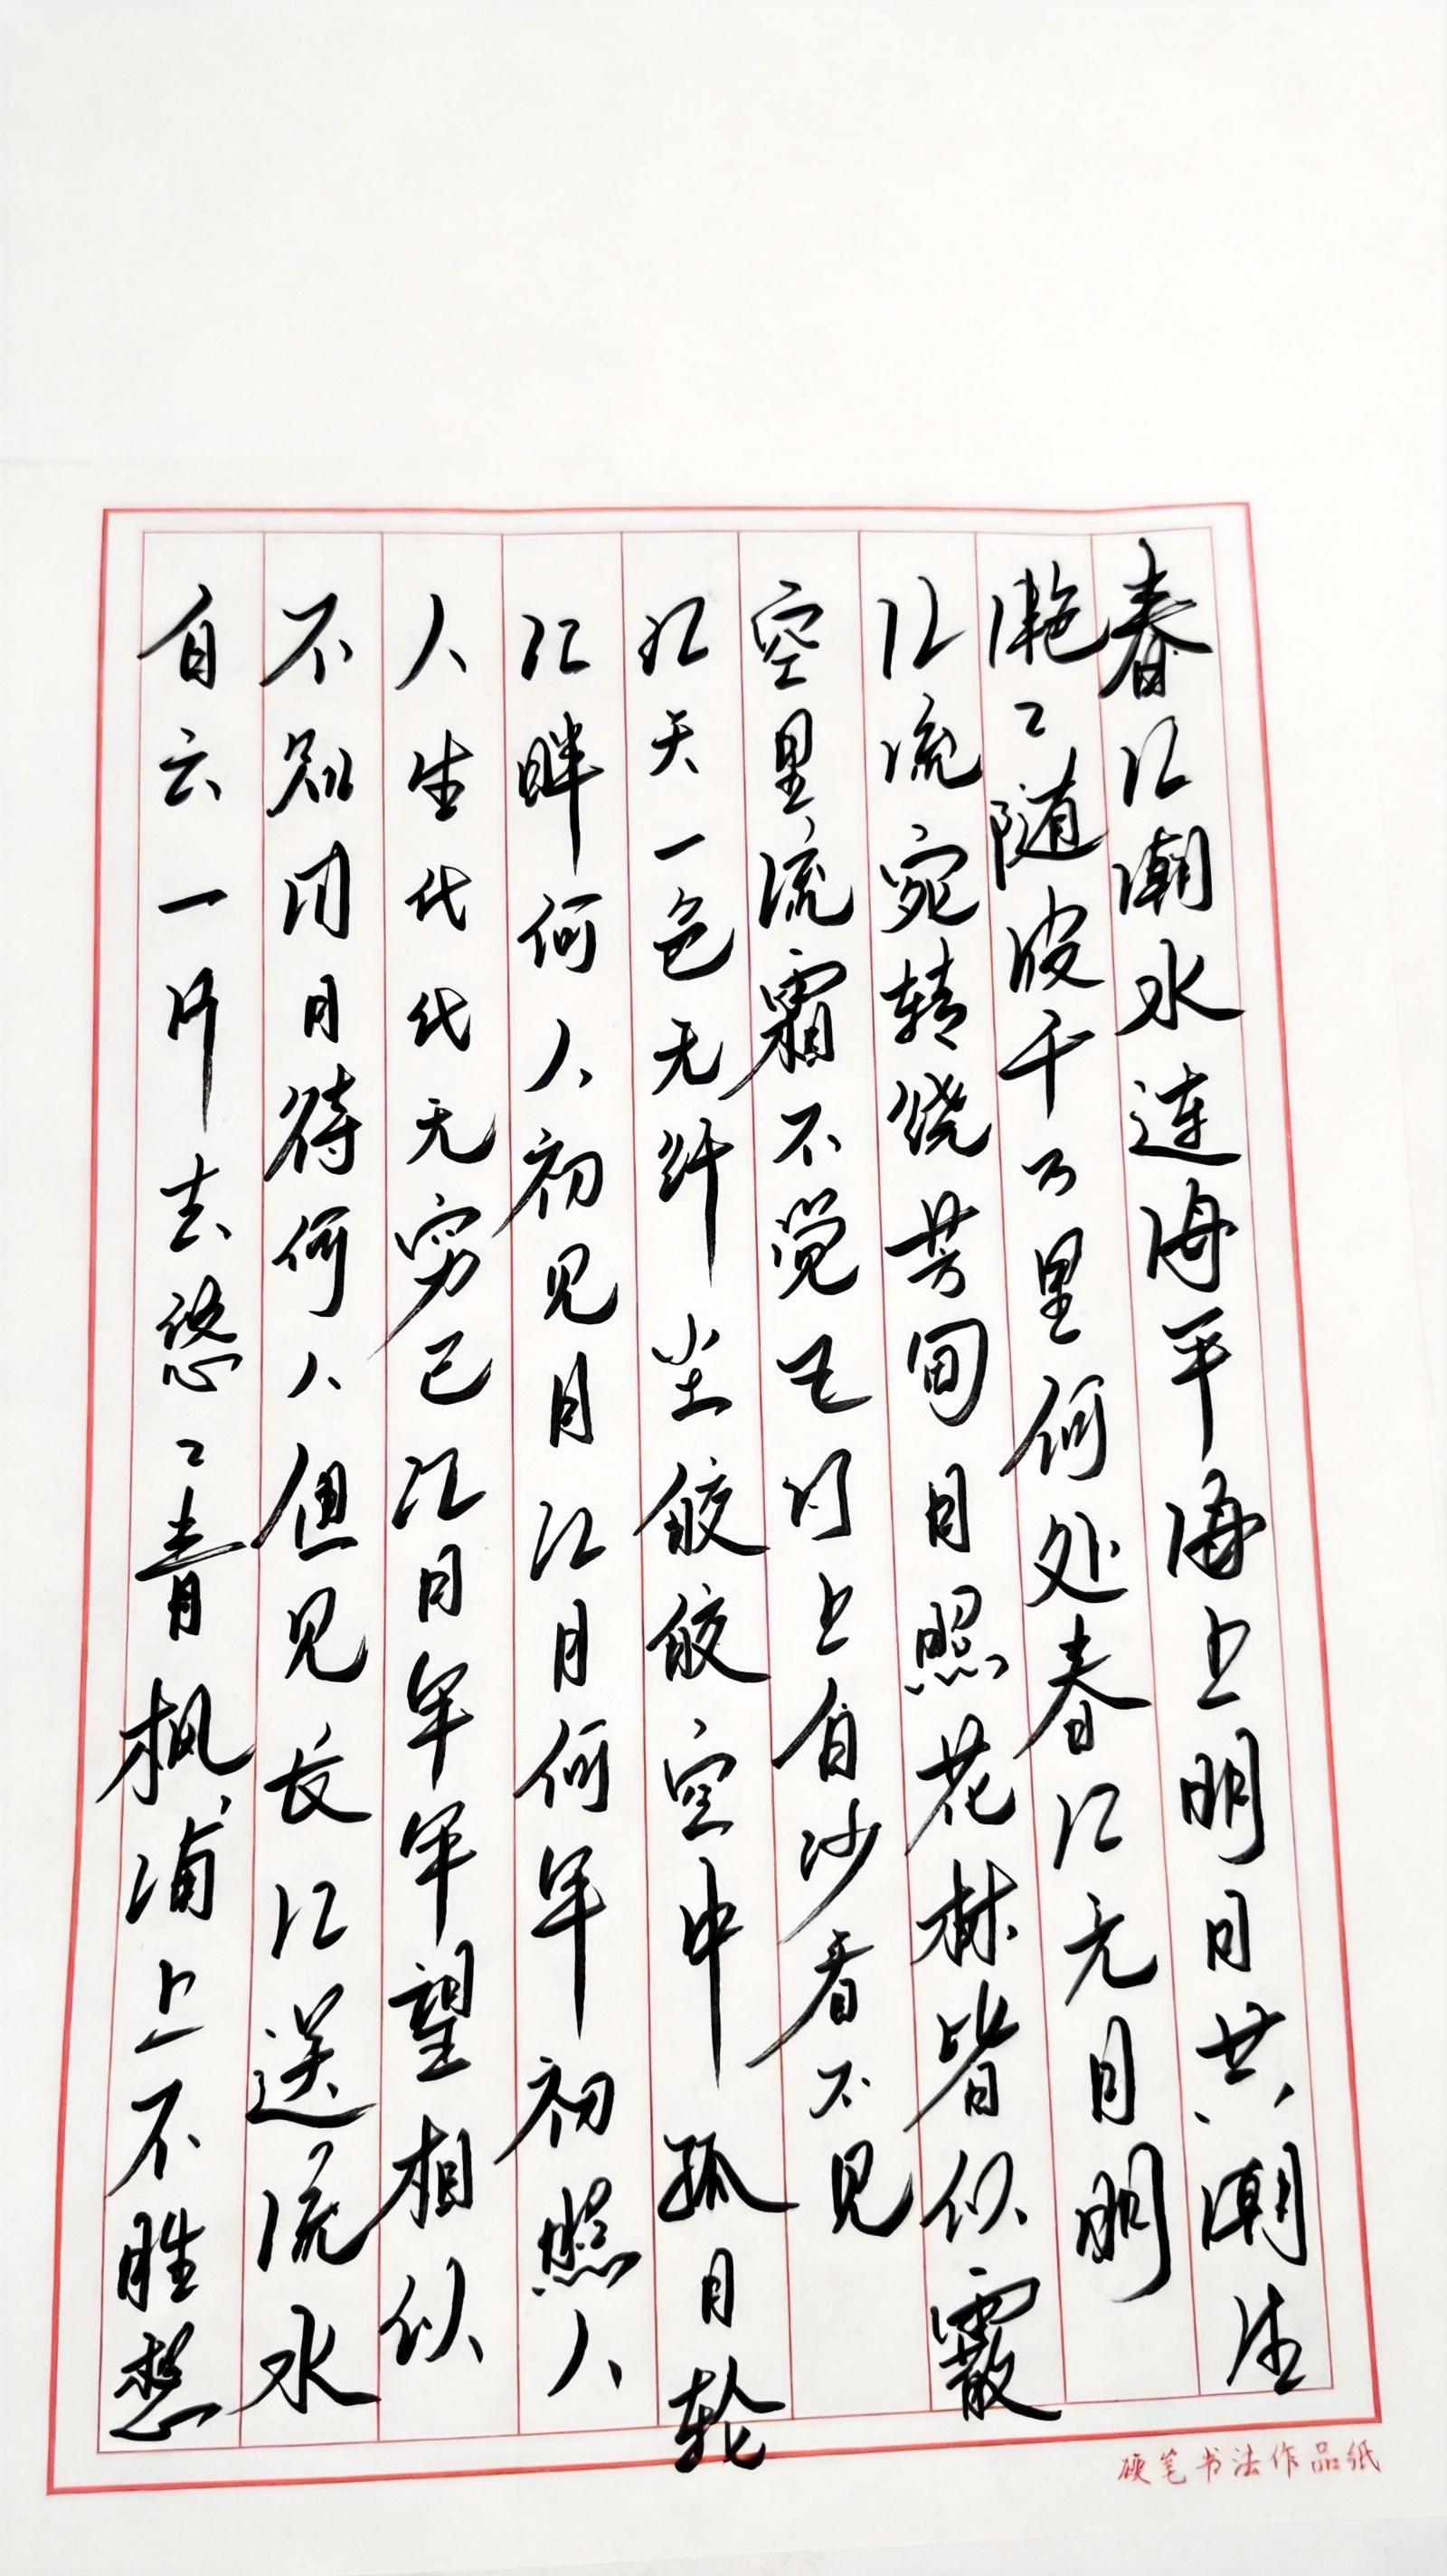 春江潮水连海平海上明月共潮生
滟〻随波千万里何处春江无月明
江流宛转绕芳甸月照花林皆似霰
空里流霜不觉飞汀上白沙看不见
江天一色无纤尘皎皎空中孤月轮
江畔何人初见月江月何年初照人
人生代代无穷已江月年年望相似
不知江月待何人但见长江送流水
白云一片去悠〻青枫浦上不胜愁
硬笔书法作品纸